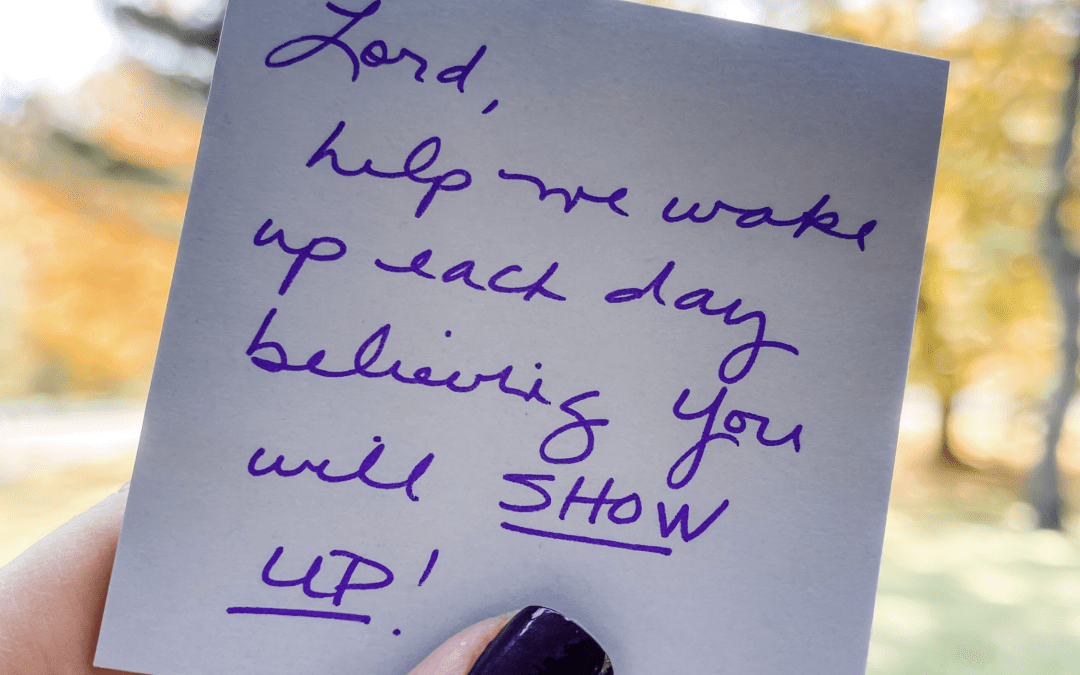 Lord,
help me wake
up each day
believing You
will SHOW
UP!